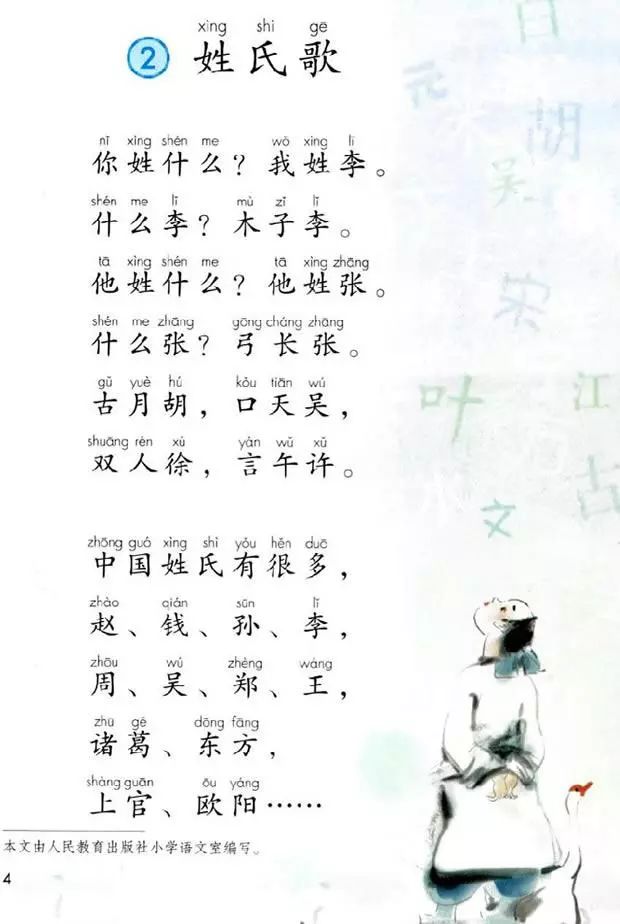 xìng shì gē
2 姓氏歌
nǐ xìng shén me wǒ xìng lǐ
你姓什么？我姓李。
shén me lǐ mù zǐ lǐ
什么李？木子李。
tā xìng shén me tā xìng zhāng
他姓什么？他姓张。
shén me zhāng gōng cháng zhāng
什么张？弓长张。
gǔ yuè hú kǒu tiān wú
古月胡，口天吴，
shuāng rén xú yán wǔ xǔ
双人徐，言午许。
zhōng guó xìng shì yǒu hěn duō
中国姓氏有很多，
zhào qián sūn lǐ
赵、钱、孙、李，
zhōu wú zhèng wáng
周、吴、郑、王，
zhū gě dōng fāng
诸葛、东方，
shàng guān ōu yáng
上官、欧阳……
本文由人民教育出版社小学语文室编写。
4
白
元
胡
吴
宋
叶
江
古
文